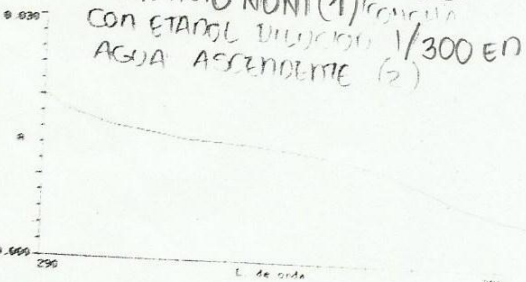 0.030
NONI (1)
CON ETANOL DILUCION 1/300 EN
AGUA ASCENDENTE (2)
A
0.000
290
L de onda